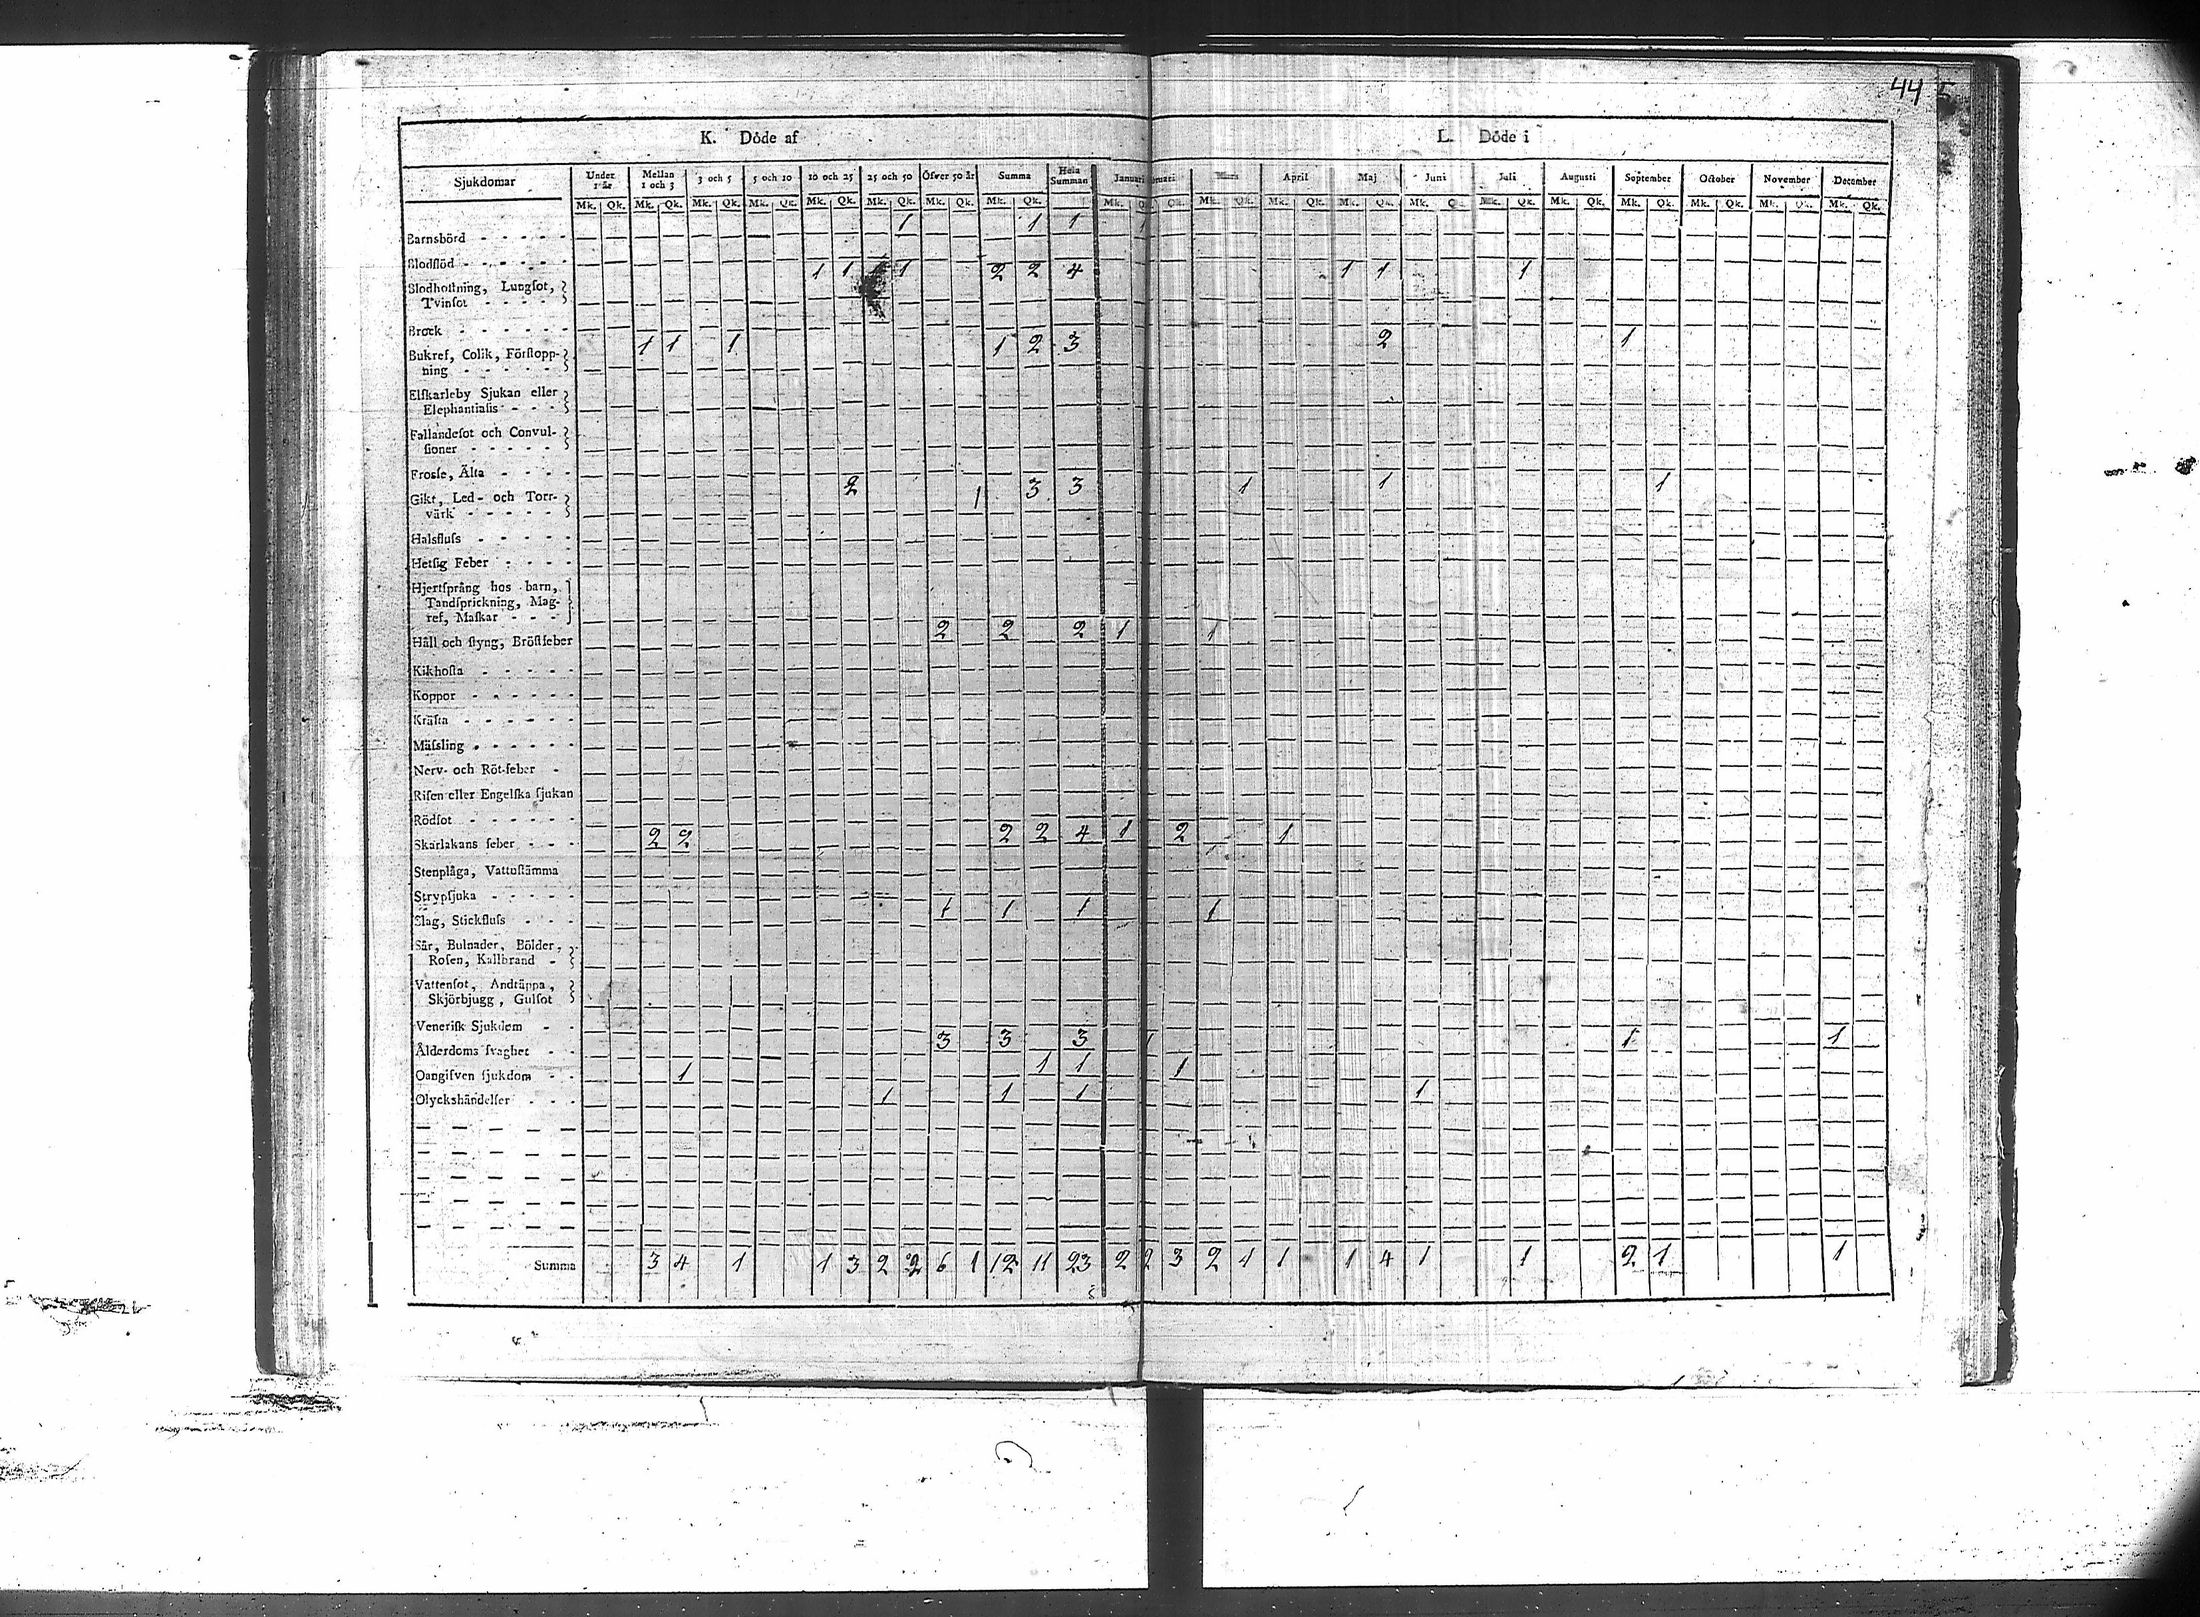 44
K. Döde af L. Döde i
Sjukdomar Under 1 år Mellan 1 och 3 3 och 5 5 och 10 10 och 25 25 och 50 Öfver 50 år Summa Hela Summan Januari bruari Mars April Maj Juni Juli Augusti September October November December
Mk. Qk. Mk. Qk. Mk. Qk. Mk. Qk. Mk. Qk. Mk. Qk. Mk. Qk. Mk. Qk. Mk. Q Qk. Mk. Qk. Mk. Qk. Mk. Qk. Mk. Q. Mk. Qk. Mk. Qk. Mk. Qk. Mk. Qk. Mk. Qk. Mk. Qk.
Barnsbörd - - - - - 1 1 1
Blodflöd - - - - - -
1 1 1 2 2 4 1 1 1
Blodhostning, Lungſot,
Tvinſot - - - -
Brock - - - - - -
1 1 1 1 2 3 2 1
Bukref, Colik, Förſtopp-
ning - - - - - -
Elſkarleby Sjukan eller
Elephantiaſis - - -
Fallandeſot och Convul-
ſioner - - - - -
Frosſe, Älta - - - -
2 1 3 3 1 1 1
Gikt, Led- och Torr-
värk - - - - -
Halsfluſs - - - - -
Hetſig Feber - - - -
Hjertſprång hos barn,
Tandſprickning, Mag-
ref, Maſkar - - -
Håll och ſtyng, Bröſtfeber 2 2 2 1 1
Kikhoſta - - - - -
Koppor - - - - - -
Kräfta - - - - - -
Mäſsling - - - - - -
Nerv- och Röt-feber -
Riſen eller Engelſka ſjukan
Rödſot - - - - - -
Skarlakans feber - - - 2 2 2 2 4 1 2 1
Stenplåga, Vattuſtämma
Strypſjuka - - - - -
Slag, Stickfluſs - - - 1 1 1 1
Sår, Bulnader, Bölder,
Roſen, Kallbrand -
Vattenſot, Andtäppa,
Skjörbjugg, Gulſot
Veneriſk Sjukdom - -
Ålderdoms ſvaghet - - 3 3 3 1 1 1
Oangifven ſjukdom - - 1 1 1 1
Olyckshändelſer - - - 1 1 1 1
Summa 3 4 1 1 3 2 2 6 1 12 11 23 2 2 3 2 1 1 1 4 1 1 2 1 1